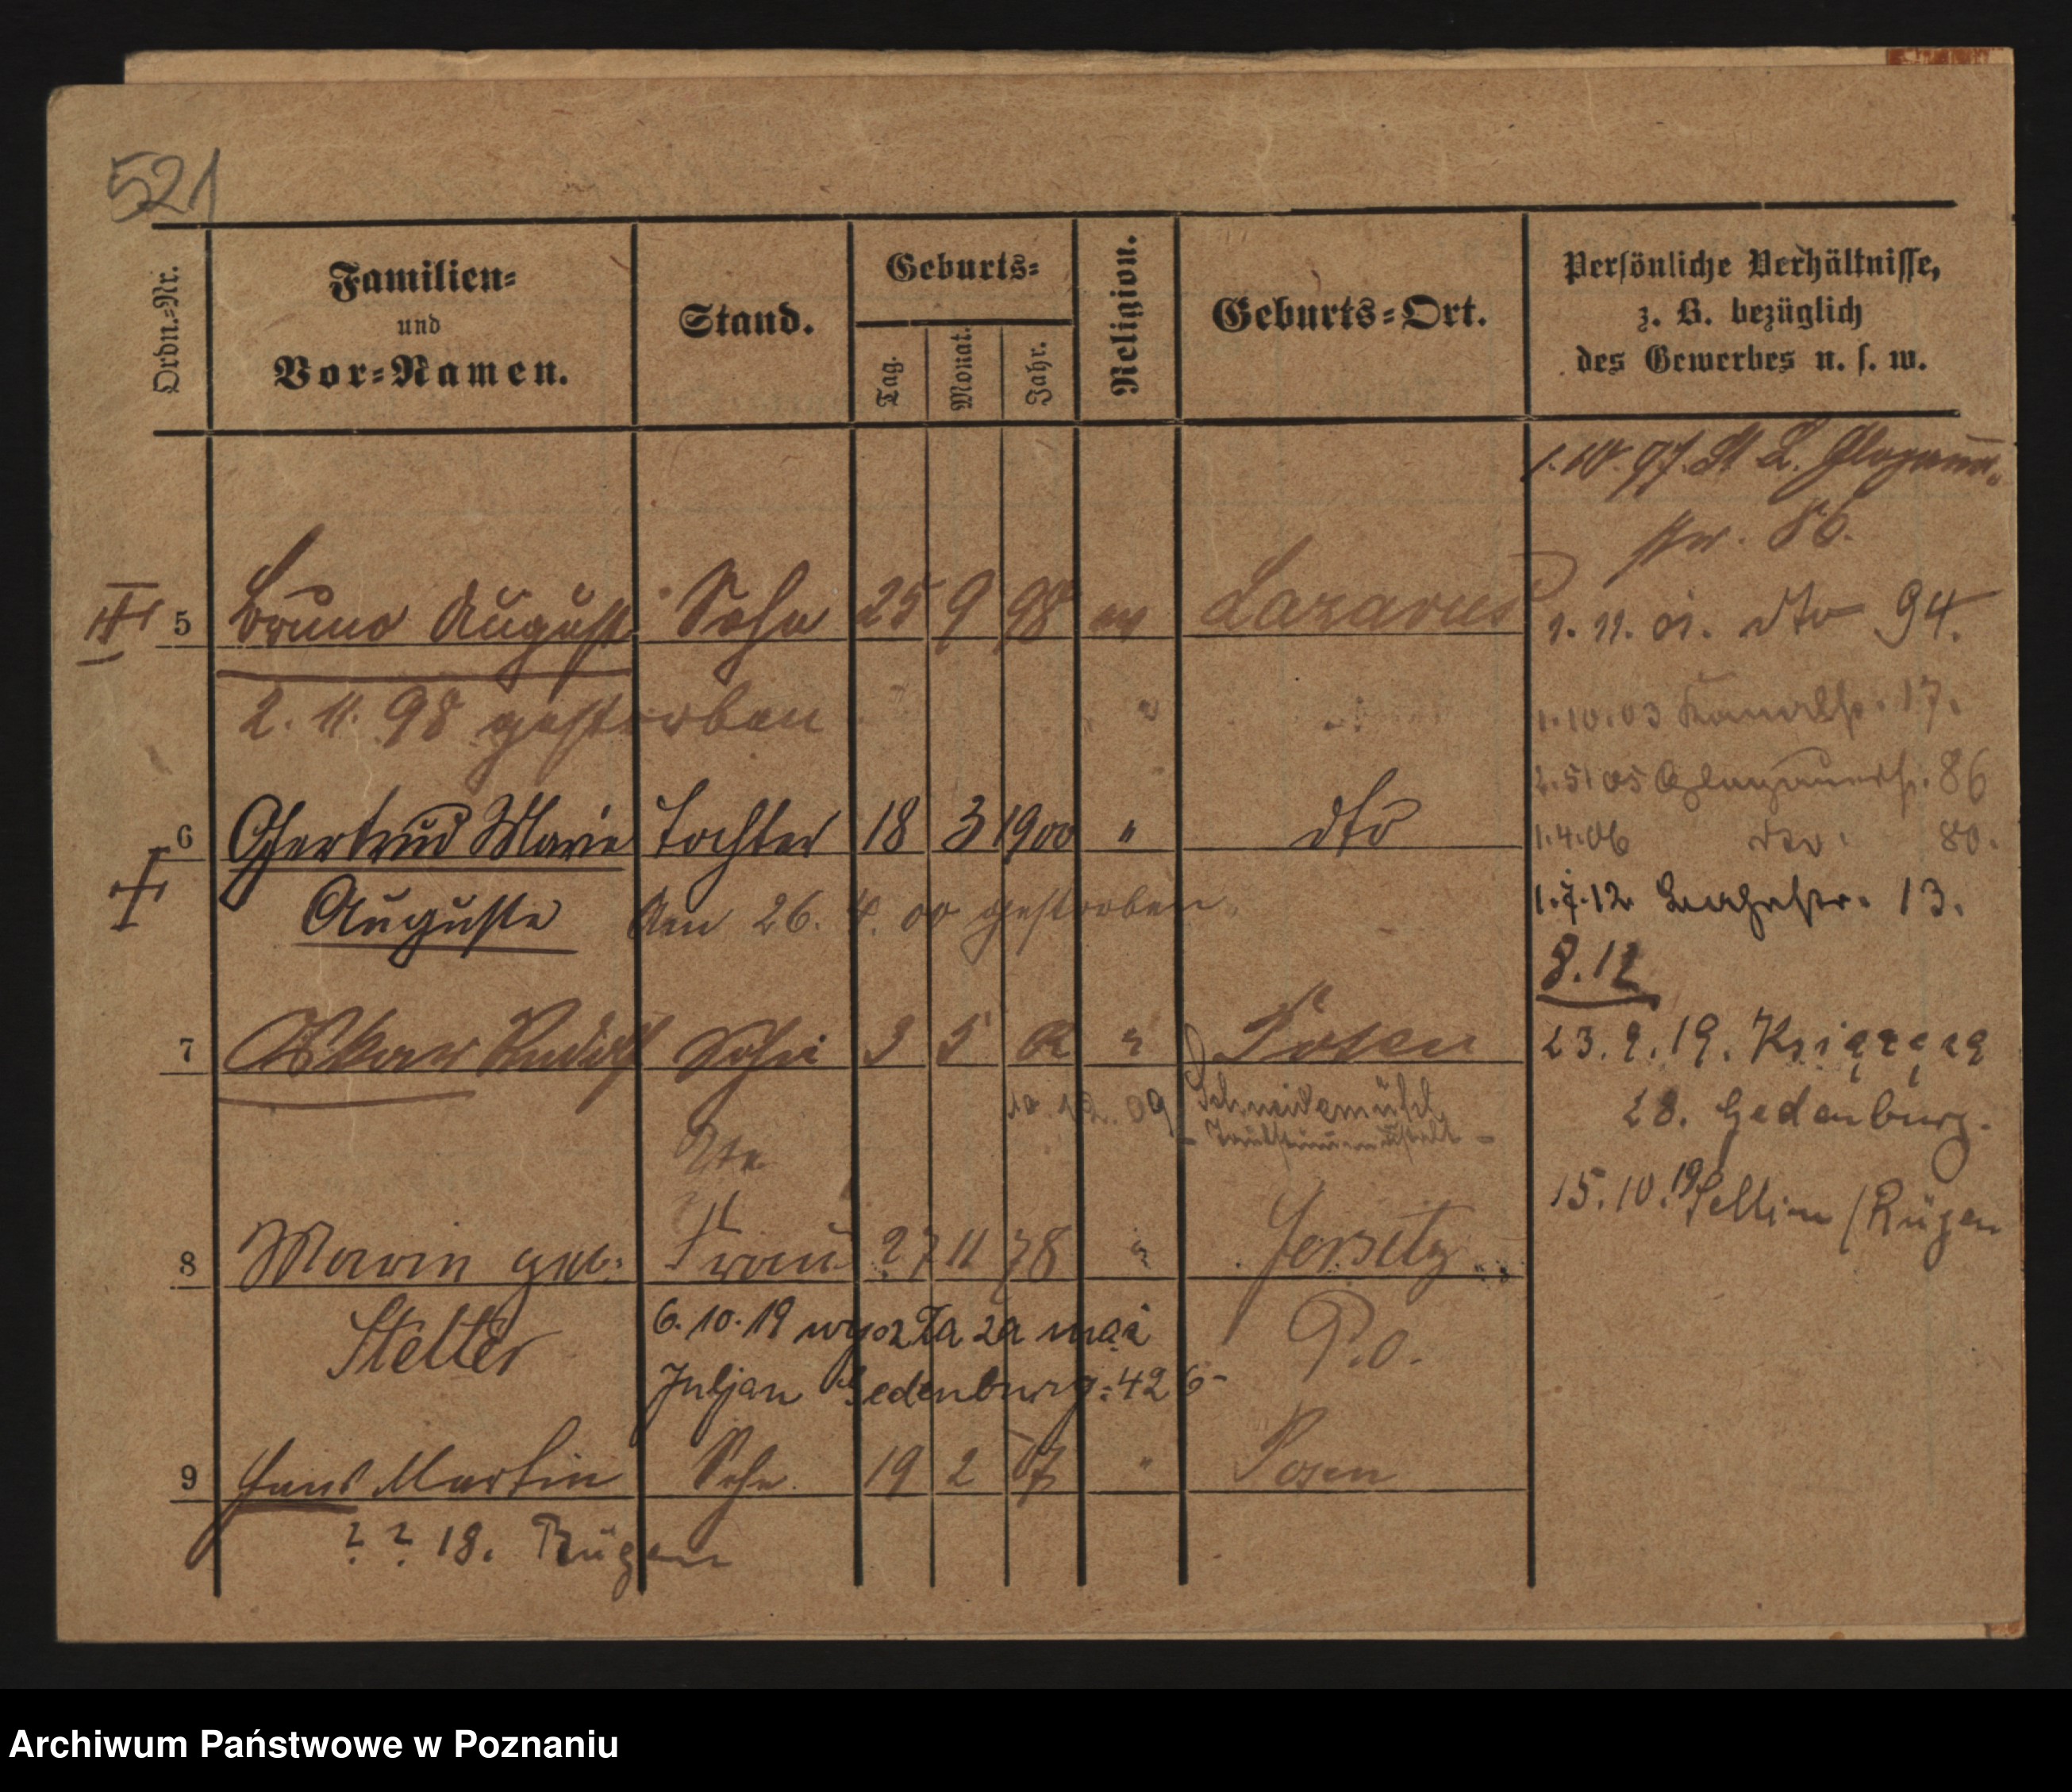 521
Ordn.=Nr.
Familien=
und
Vor=Namen.
Stand.
Geburts=
Tag.
Monat.
Jahr.
Religion.
Geburts=Ort.
Persönliche Verhältnisse,
z. B. bezüglich
des Gewerbes u. s. w.
1.10.97. St L. Glogauer
str. 86.
5 Bruno August Sohn 25 9 98 ev Lazarus
1. 11. 01. dto 94.
2. 11. 98 gestorben "
1.10.03 Kanalstr. 17.
2.5.05 Glogauerstr. 86
6 Gertrud Marie Tochter 18 3 1900 " dto
1.4.06 dto. 80.
Auguste Am 26. 4. 00 gestorben
1.7.12 13.
8.12
7 Oskar Rudolf Sohn 3 5 02 " Posen
23.9.19. Książęca
10.12.09 Schneidemühl
- Taubstummenanstalt -
28. Gedenburg.
IIte
15.10.19 Sellin / Rügen
8 Marin geb: Frau 27 11 78 " Jersitz
Stelter 6.10.19 wyszła za mąż P.O.
Juljan Gedenburg: 426-
9 Hans Martin Sohn 19 2 07 " Posen
? ? 18. Rügen
Archiwum Państwowe w Poznaniu